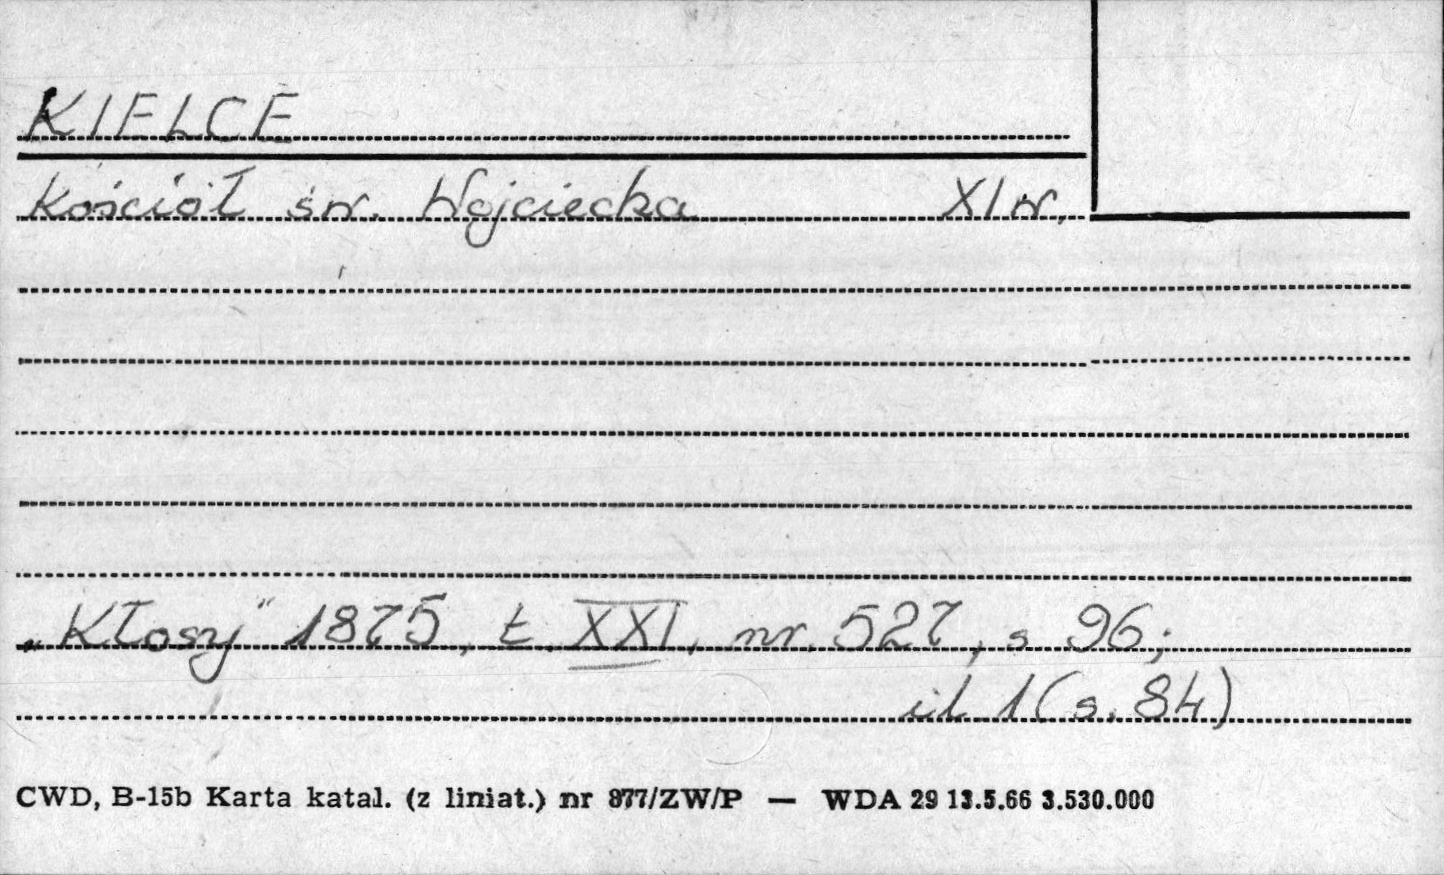 KIELCE
Kościół św. Wojciecha XI w.
„Kłosy" 1875, t. XXI, nr. 527, s 96;
il 1 (s. 84)
CWD, B-15b Karta katal. (z liniat.) nr 877/ZW/P — WDA 29 13.5.66 3.530.000